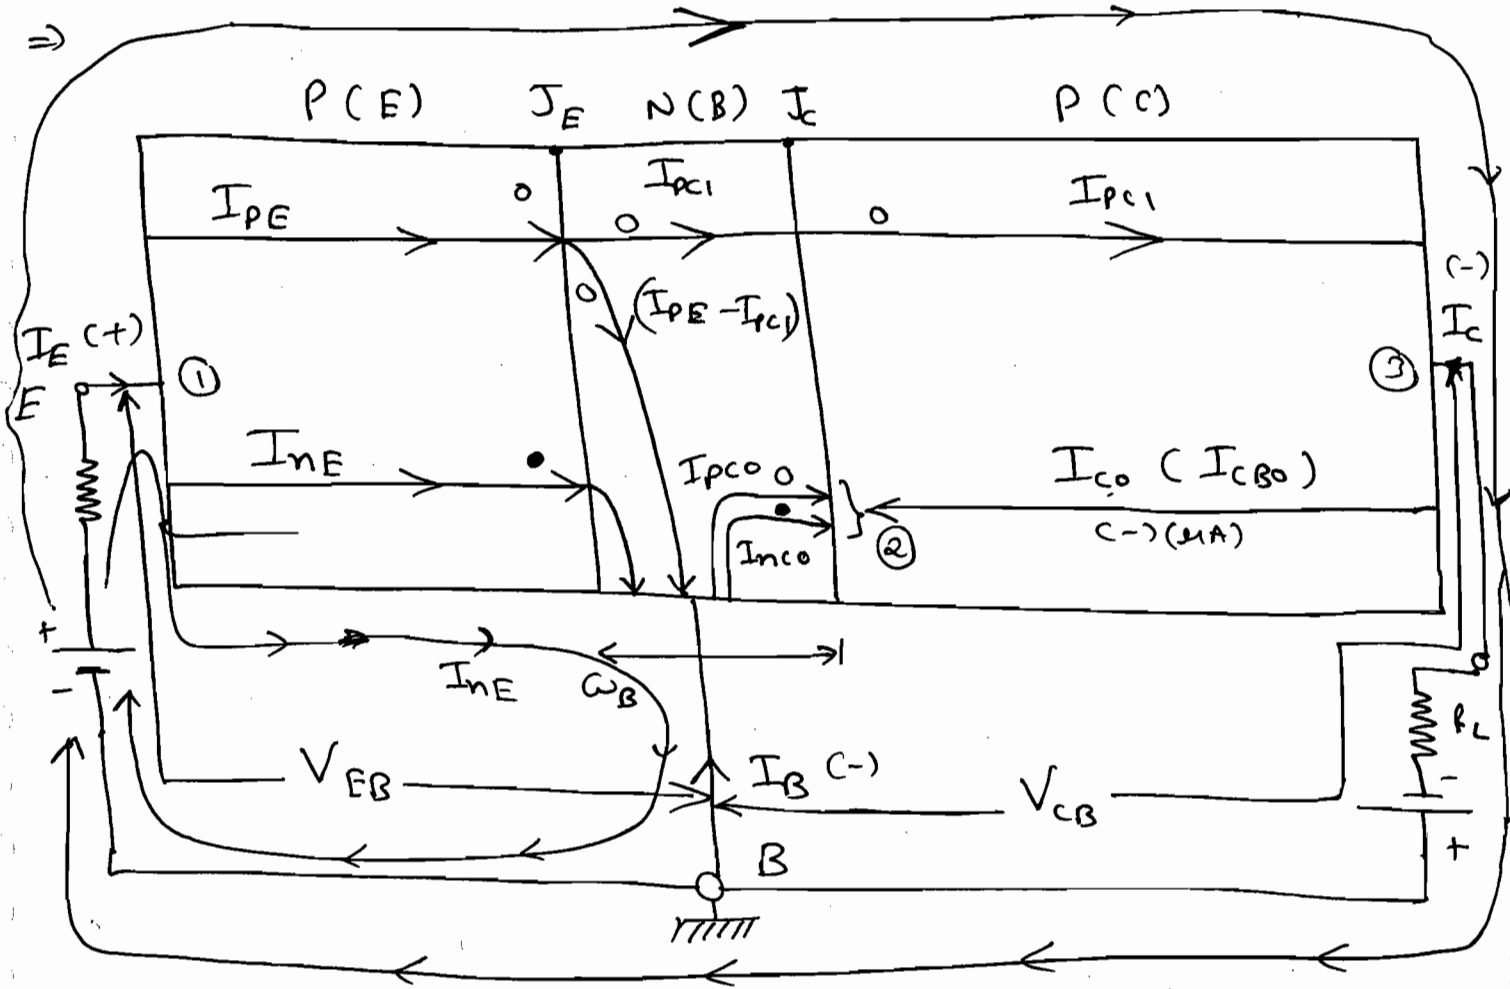 ⇒)
P (E) J_E N (B) J_C P (C)
I_PE I_PC1 I_PC1
(I_PE - I_PC1)
(-)
I_C
I_E (+)
E
①
③
I_nE
I_PCO
I_CO (I_CBO)
(-) (μA)
②
I_nCO
+
-
I_nE
ω_B
R_L
V_EB
I_B (-)
V_CB
-
+
B